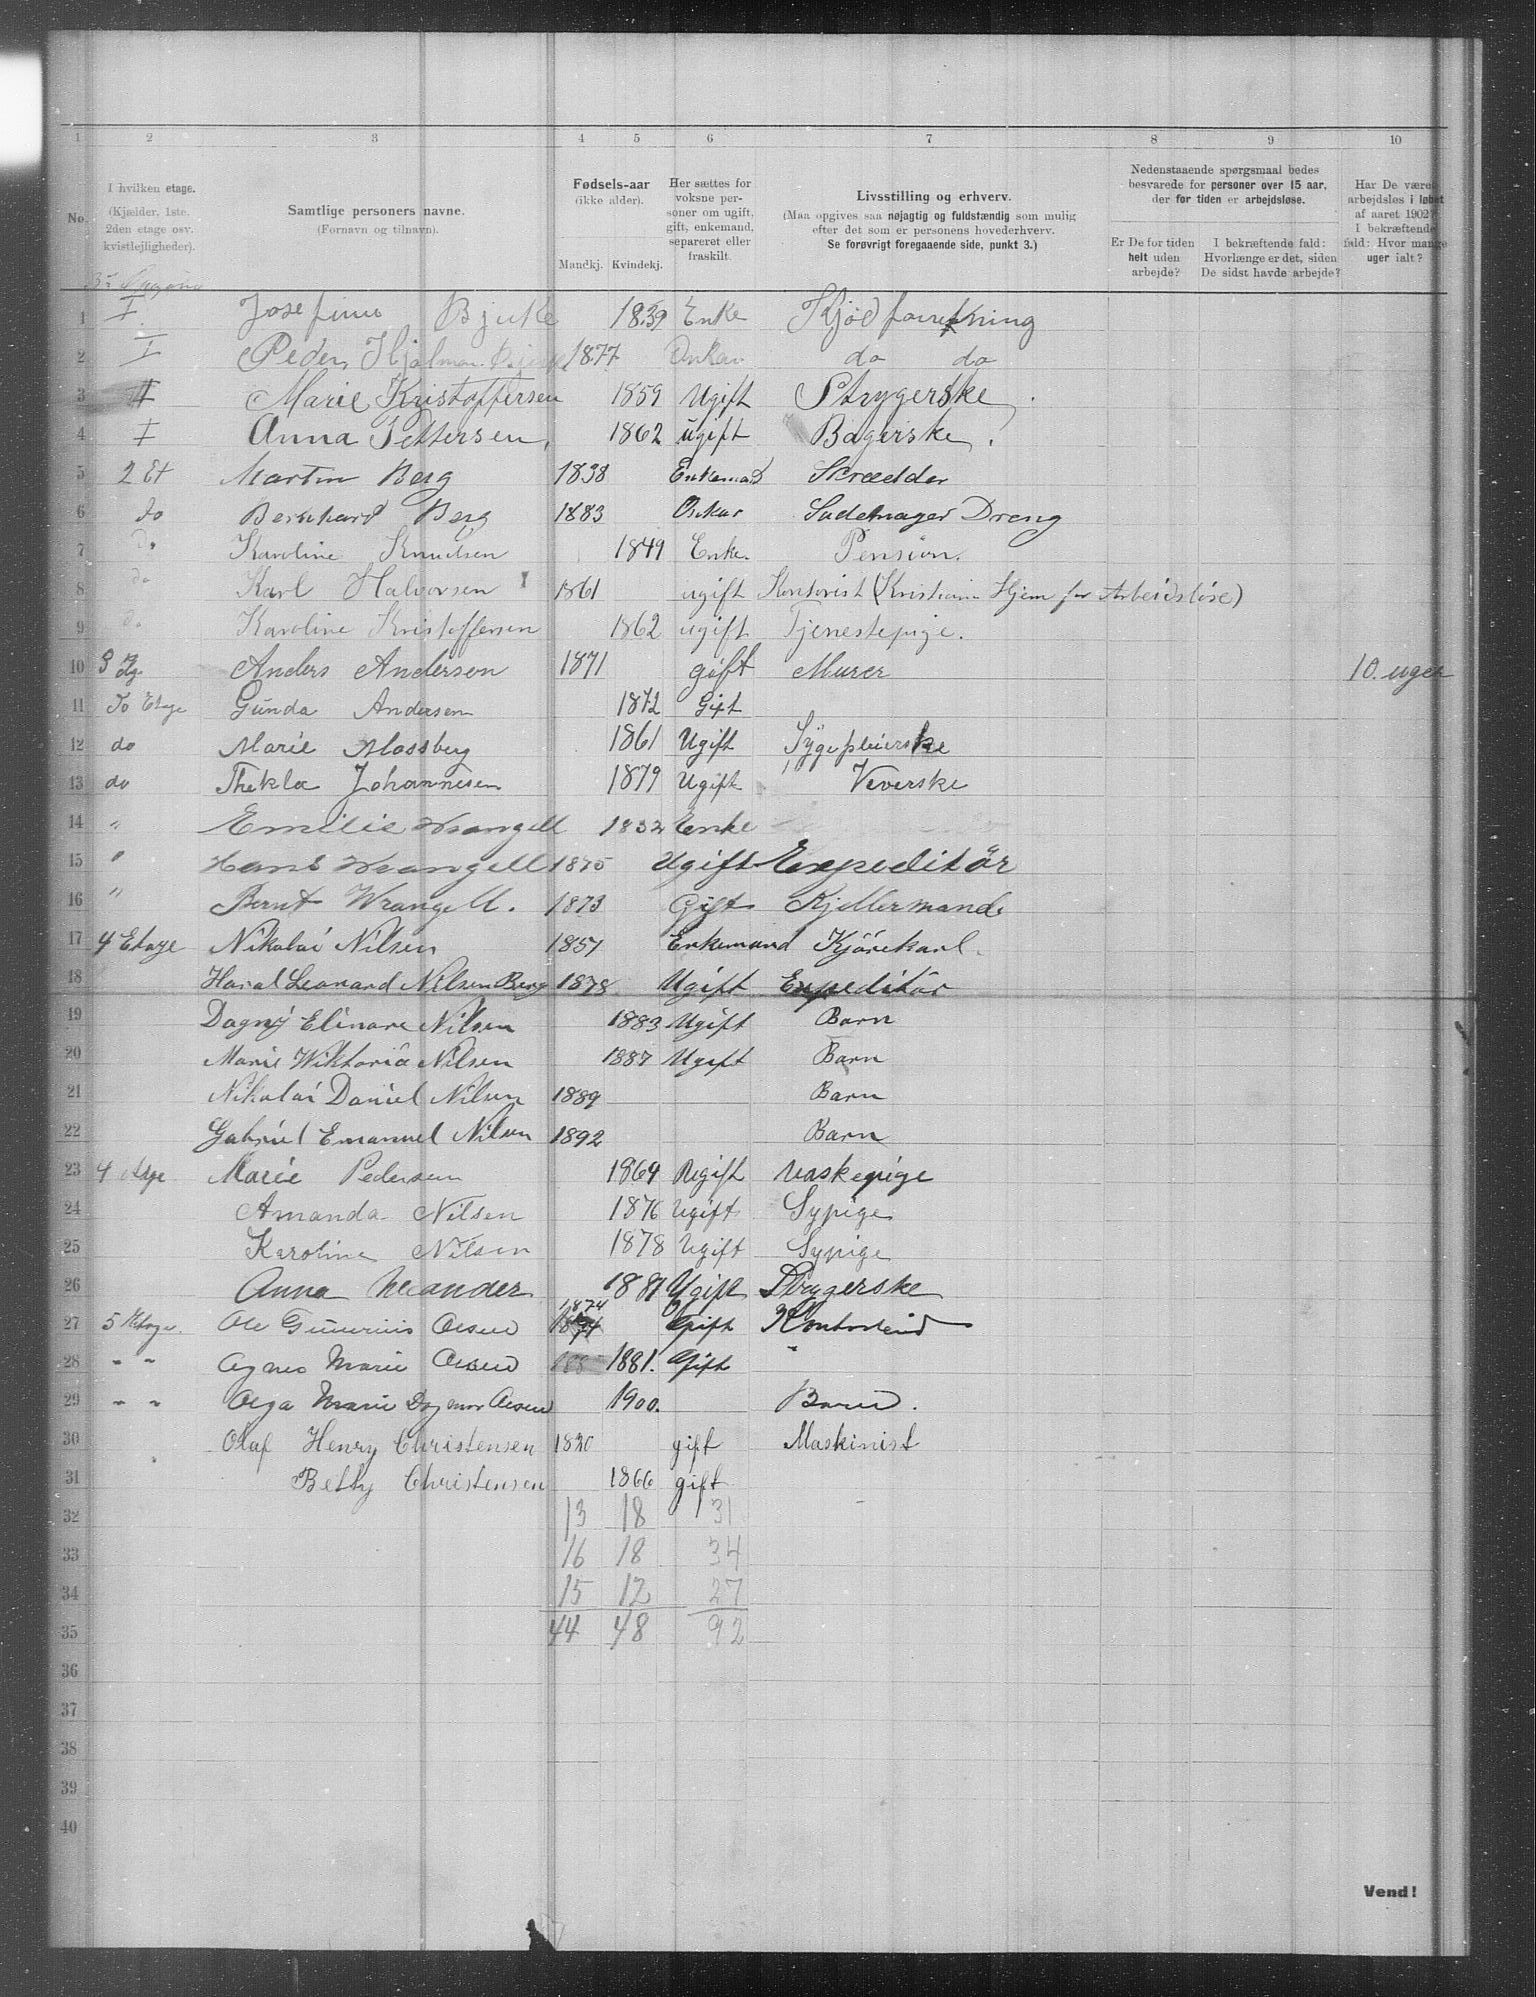 1 2 3 4 5 6 7 8 9 10
No. I hvilken etage. (Kjælder, 1ste. 2den etage osv. kvistlejligheder). Samtlige personers navne. (Fornavn og tilnavn). Fødsels-aar (ikke alder). Mandkj. Kvindekj. Her sættes for voksne personer om ugift, gift, enkemand, separeret eller fraskilt. Livsstilling og erhverv. (Maa opgives saa nøjagtig og fuldstændig som mulig efter det som er personens hovederhverv. Se forøvrigt foregaaende side, punkt 3.) Nedenstaaende spørgsmaal bedes besvarede for personer over 15 aar, der for tiden er arbejdsløse. Er De for tiden helt uden arbejde? I bekræftende fald: Hvorlænge er det, siden De sidst havde arbejde? Har De været arbejdsløs i løbet af aaret 1902? I bekræftende fald: Hvor mange uger ialt?
1 I Josefine Bjerke 1839 Enke Kjødforretning
2 I Peder Hjalmar 1877 do do
3 II Marie Kristoffersen 1859 Ugift Strygerske
4 I Anna Pettersen, 1862 ugift Bagerske.
5 2 Et Martin Berg 1838 Enkemand Skrædder
6 do Bernhard Berg 1883 Sadelmager Dreng
7 Do Karoline Knudsen 1849 Enke. Pension.
8 do Karl Halvorsen 1861 ugift Kontorist (Kristiania Hjem for Arbeidsløse)
9 do Karoline Kristoffersen 1862 ugift Tjenestepige.
10 3 Anders Anderson 1871 gift Murer 10. uger
11 do Etage Gunda Andersen 1872 Gift
12 do Marie Mossberg 1861 Ugift Sygepleierske
13 do Thekla Johannesen 1879 Ugift Veverske
14 " Emilie Wrangell 1832 Enke
15 " Hans Wrangell 1875 Ugift Expeditör
16 " Bernt Wrangell. 1873 Gift Kjellermand
17 4 Etage Nikolai Nilsen 1857 Enkemand Kjörekarl.
18 Haral Leonard Nilsen Berg 1878 Ugift Expeditör
19 Dagny Elinore Nilsen 1883 Ugift Barn
20 Marie Wiktoria Nilsen 1887 Ugift Barn
21 Nikolai Daniel Nilsen 1889 Barn
22 Gabriel Emanuel Nilsen 1892 Barn
23 4 Marie Pedersen 1864 Ugift Vaskepige
24 Amanda Nilsen 1876 Ugift Sypige
25 Karoline Nilsen 1878 Ugift Sypige
26 Anna 1881 Ugift Strygerske
27 5 Etage. Ole Gunerius Olsen 1874 Gift
28 " " Agnes Marie Olsen 1881. Gift "
29 " " Olga Marie Dagmar Olsen 1900. Barn.
30 Olaf Henry Christensen 1820 gift Maskinist
31 Betty Christensen 1866 gift
32 13 18 31
33 16 18 34
34 15 12 27
35 44 48 92
36
37
38
39
40
Vend!